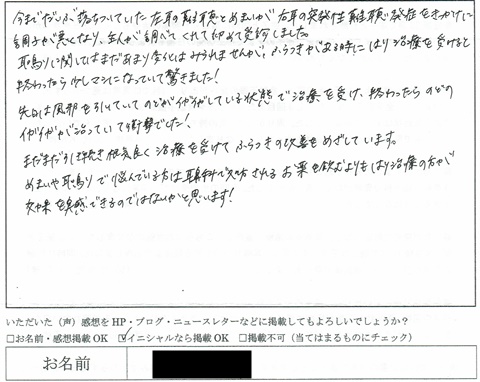 今までだいぶ落ちついていた左耳の難聴とめまいが右耳の突発性難聴発症をきっかけに
調子が悪くなり、主人が調べてくれて初めて受診しました。
耳鳴りに関してはまだあまり変化はみられませんが、ふらつきがある時にはり治療を受けると
終わったら少しマシになっていて驚きました！
先日は風邪を引いていてのどがイガイガしている状態で治療を受け、終わったらのどの
イガイガが治っていて衝撃でした！
まだまだ引き続き根気良く治療を受けてふらつきの改善をめざしています。
めまいや耳鳴りで悩んでいる方は耳鼻科で処方されるお薬を飲むよりもはり治療の方が
効果を実感できるのではないかと思います！
いただいた（声）感想をHP・ブログ・ニュースレターなどに掲載してもよろしいでしょうか？
□お名前・感想掲載OK ☑イニシャルなら掲載OK □掲載不可（当てはまるものにチェック）
お名前